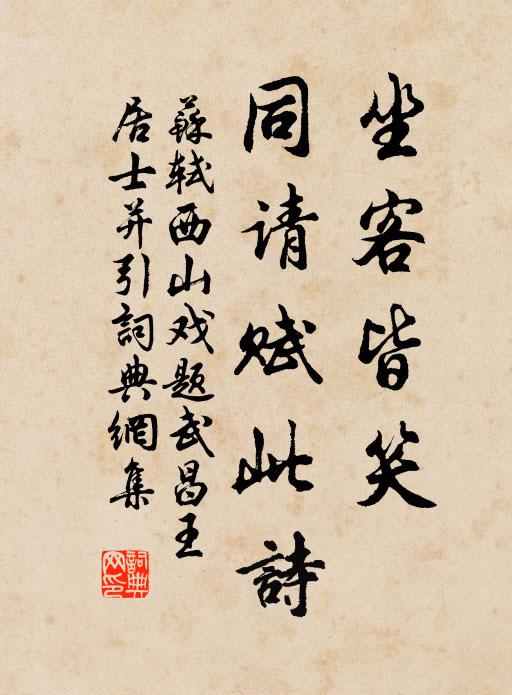 坐客皆笑
同请赋此詩
蘇轼西山戏题武昌王
居士并引詞典網集
詞典
网印